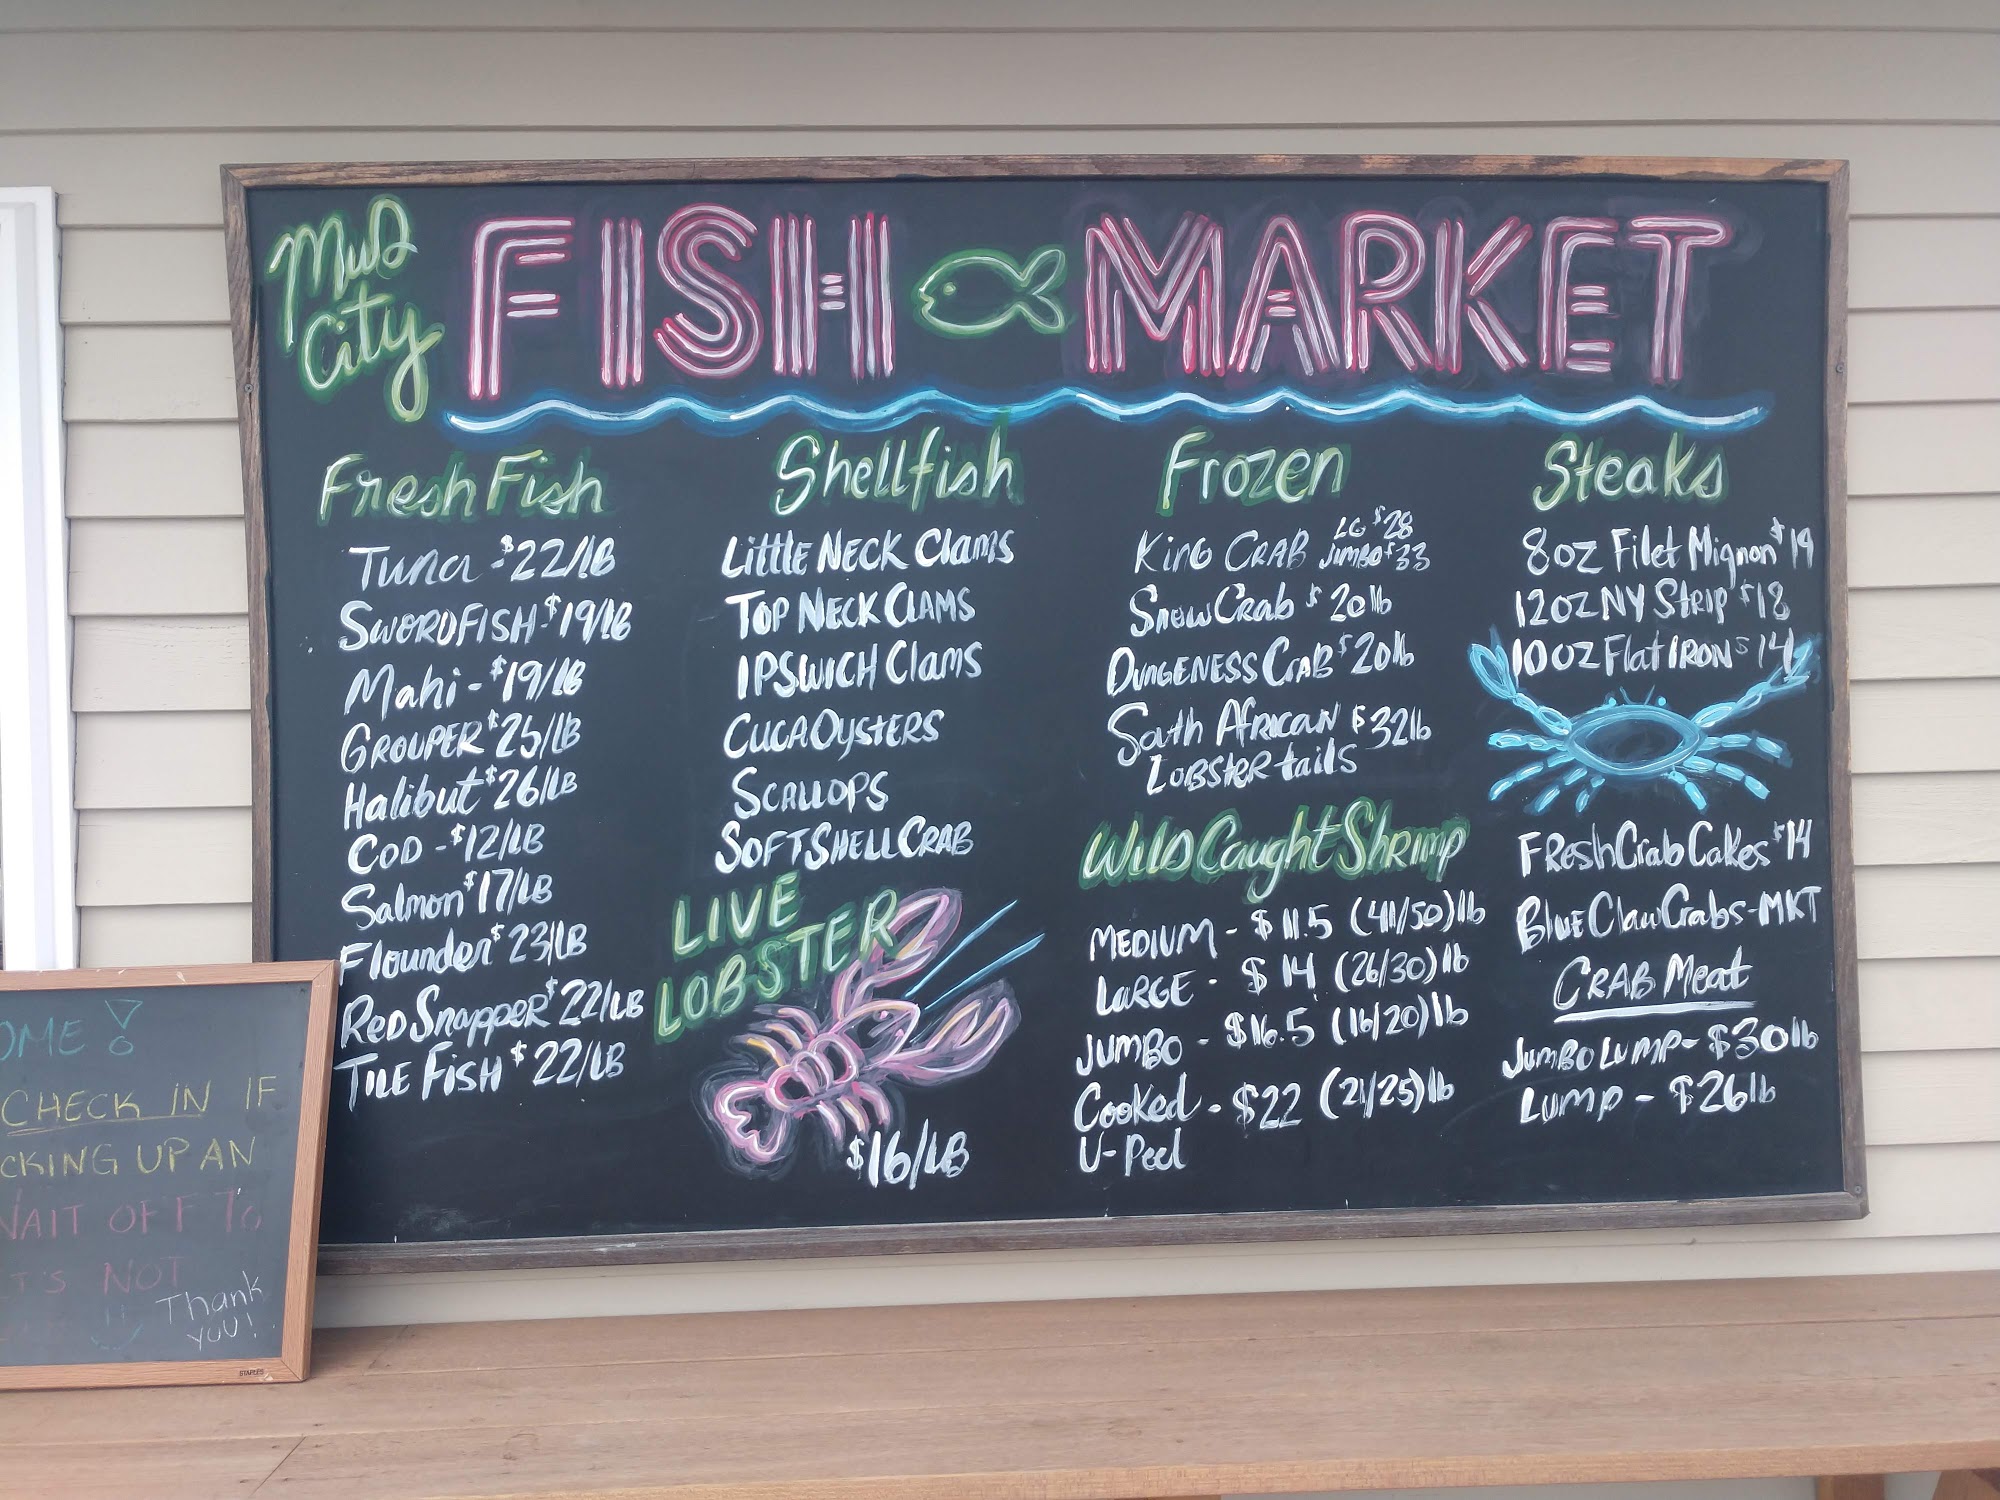 Mud
City
FISH MARKET
Fresh Fish
Tuna - $22/LB
SWORDFISH - $19/LB
Mahi - $19/LB
GROUPER $25/LB
Halibut $26/LB
COD - $12/LB
Salmon $17/LB
Flounder $23/LB
RED Snapper $22/LB
TILE FISH $22/LB
Shellfish
Little NECK Clams
TOP NECK CLAMS
IPSWICH Clams
CUCA OysTERS
SCALLOPS
SOFTSHELL CRAB
LIVE
LOBSTER
$16/LB
Frozen
KING CRAB LG $28
JUMBO $33
Snow Crab $20lb
DUNGENESS CRAB $20lb
South AFRICAN $32lb
LOBSTER tails
Wild Caught Shrimp
MEDIUM - $11.5 (41/50)lb
LARGE - $14 (26/30)lb
JUMBO - $16.5 (16/20)lb
Cooked - $22 (21/25)lb
U-Peel
Steaks
8oz Filet Mignon $19
12oz NY STRIP $18
10oz Flat IRON $14
FResh Crab Cakes $14
Blue Claw Crabs - MKT
CRAB Meat
JUMBO LUMP - $30lb
LUMP - $26lb
OME !
CHECK IN IF
CKING UP AN
WAIT OFF TO
T'S NOT
Thank
you!
STAPLES